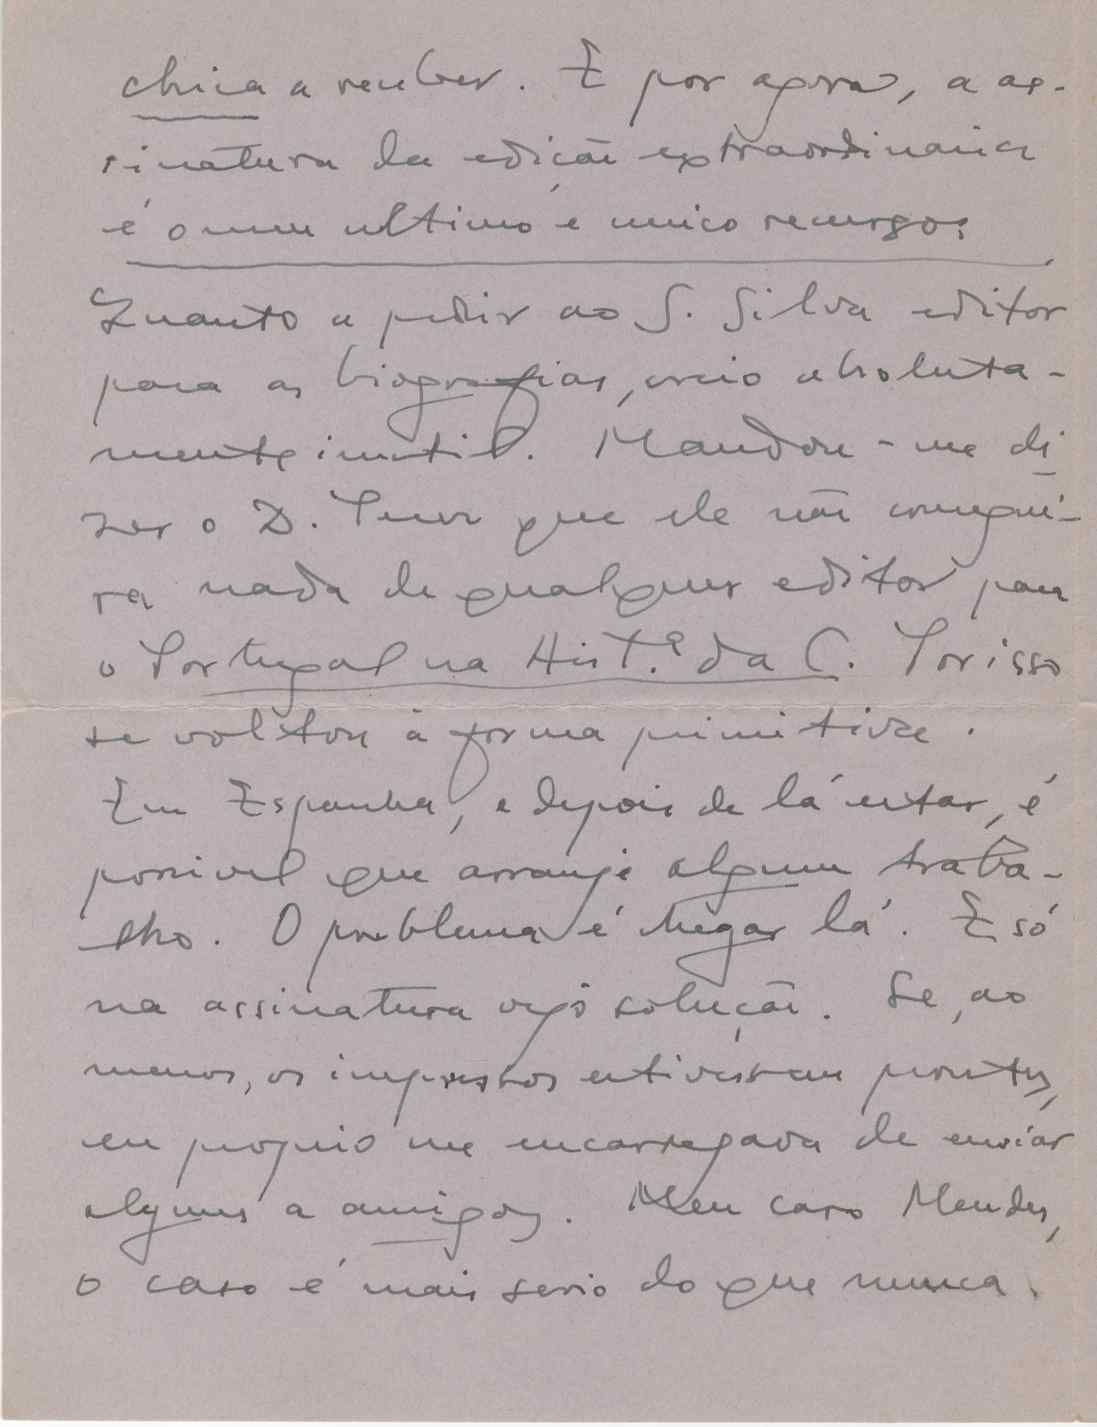 chica a receber. E por agora, a as-
sinatura da edição extraordinaria
é o meu ultimo e unico recurso.
Quanto a pedir ao S. Silva editor
para as biografias, creio absoluta-
mente inutil. Mandou-me di
zer o D. que ele não consegui-
ra nada de qualquer editor para
o Portugal na Histª. da C. Por isso
se voltou á forma primitiva.
Em Espanha, e depois de lá estar, é
possivel que arranje algum traba-
lho. O problema é chegar lá. E só
na assinatura vejo solução. Se, ao
menos, os impressos estivessem prontos,
eu proprio me encarregava de enviar
alguns a amigos. Meu caro Mendes,
o caso é mais serio do que nunca.